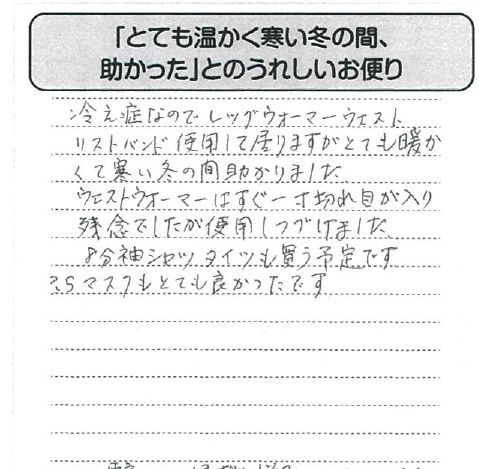 「とても温かく寒い冬の間、
助かった」とのうれしいお便り
冷え症なので レッグウォーマーウェスト
リストバンド 使用して居りますがとても暖か
くて寒い冬の間助かりました
ウェストウォーマーはすぐ一寸切れ目が入り
残念でしたが使用しつづけました
8分袖シャツ タイツも買う予定です
マスクもとても良かったです